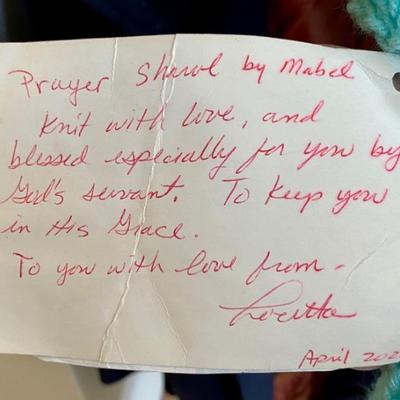 Prayer Shawl by Mabel
Knit with love, and
blessed especially for you by
God's servant. To keep you
in His Grace.
To you with love from -
Loretta
April 202